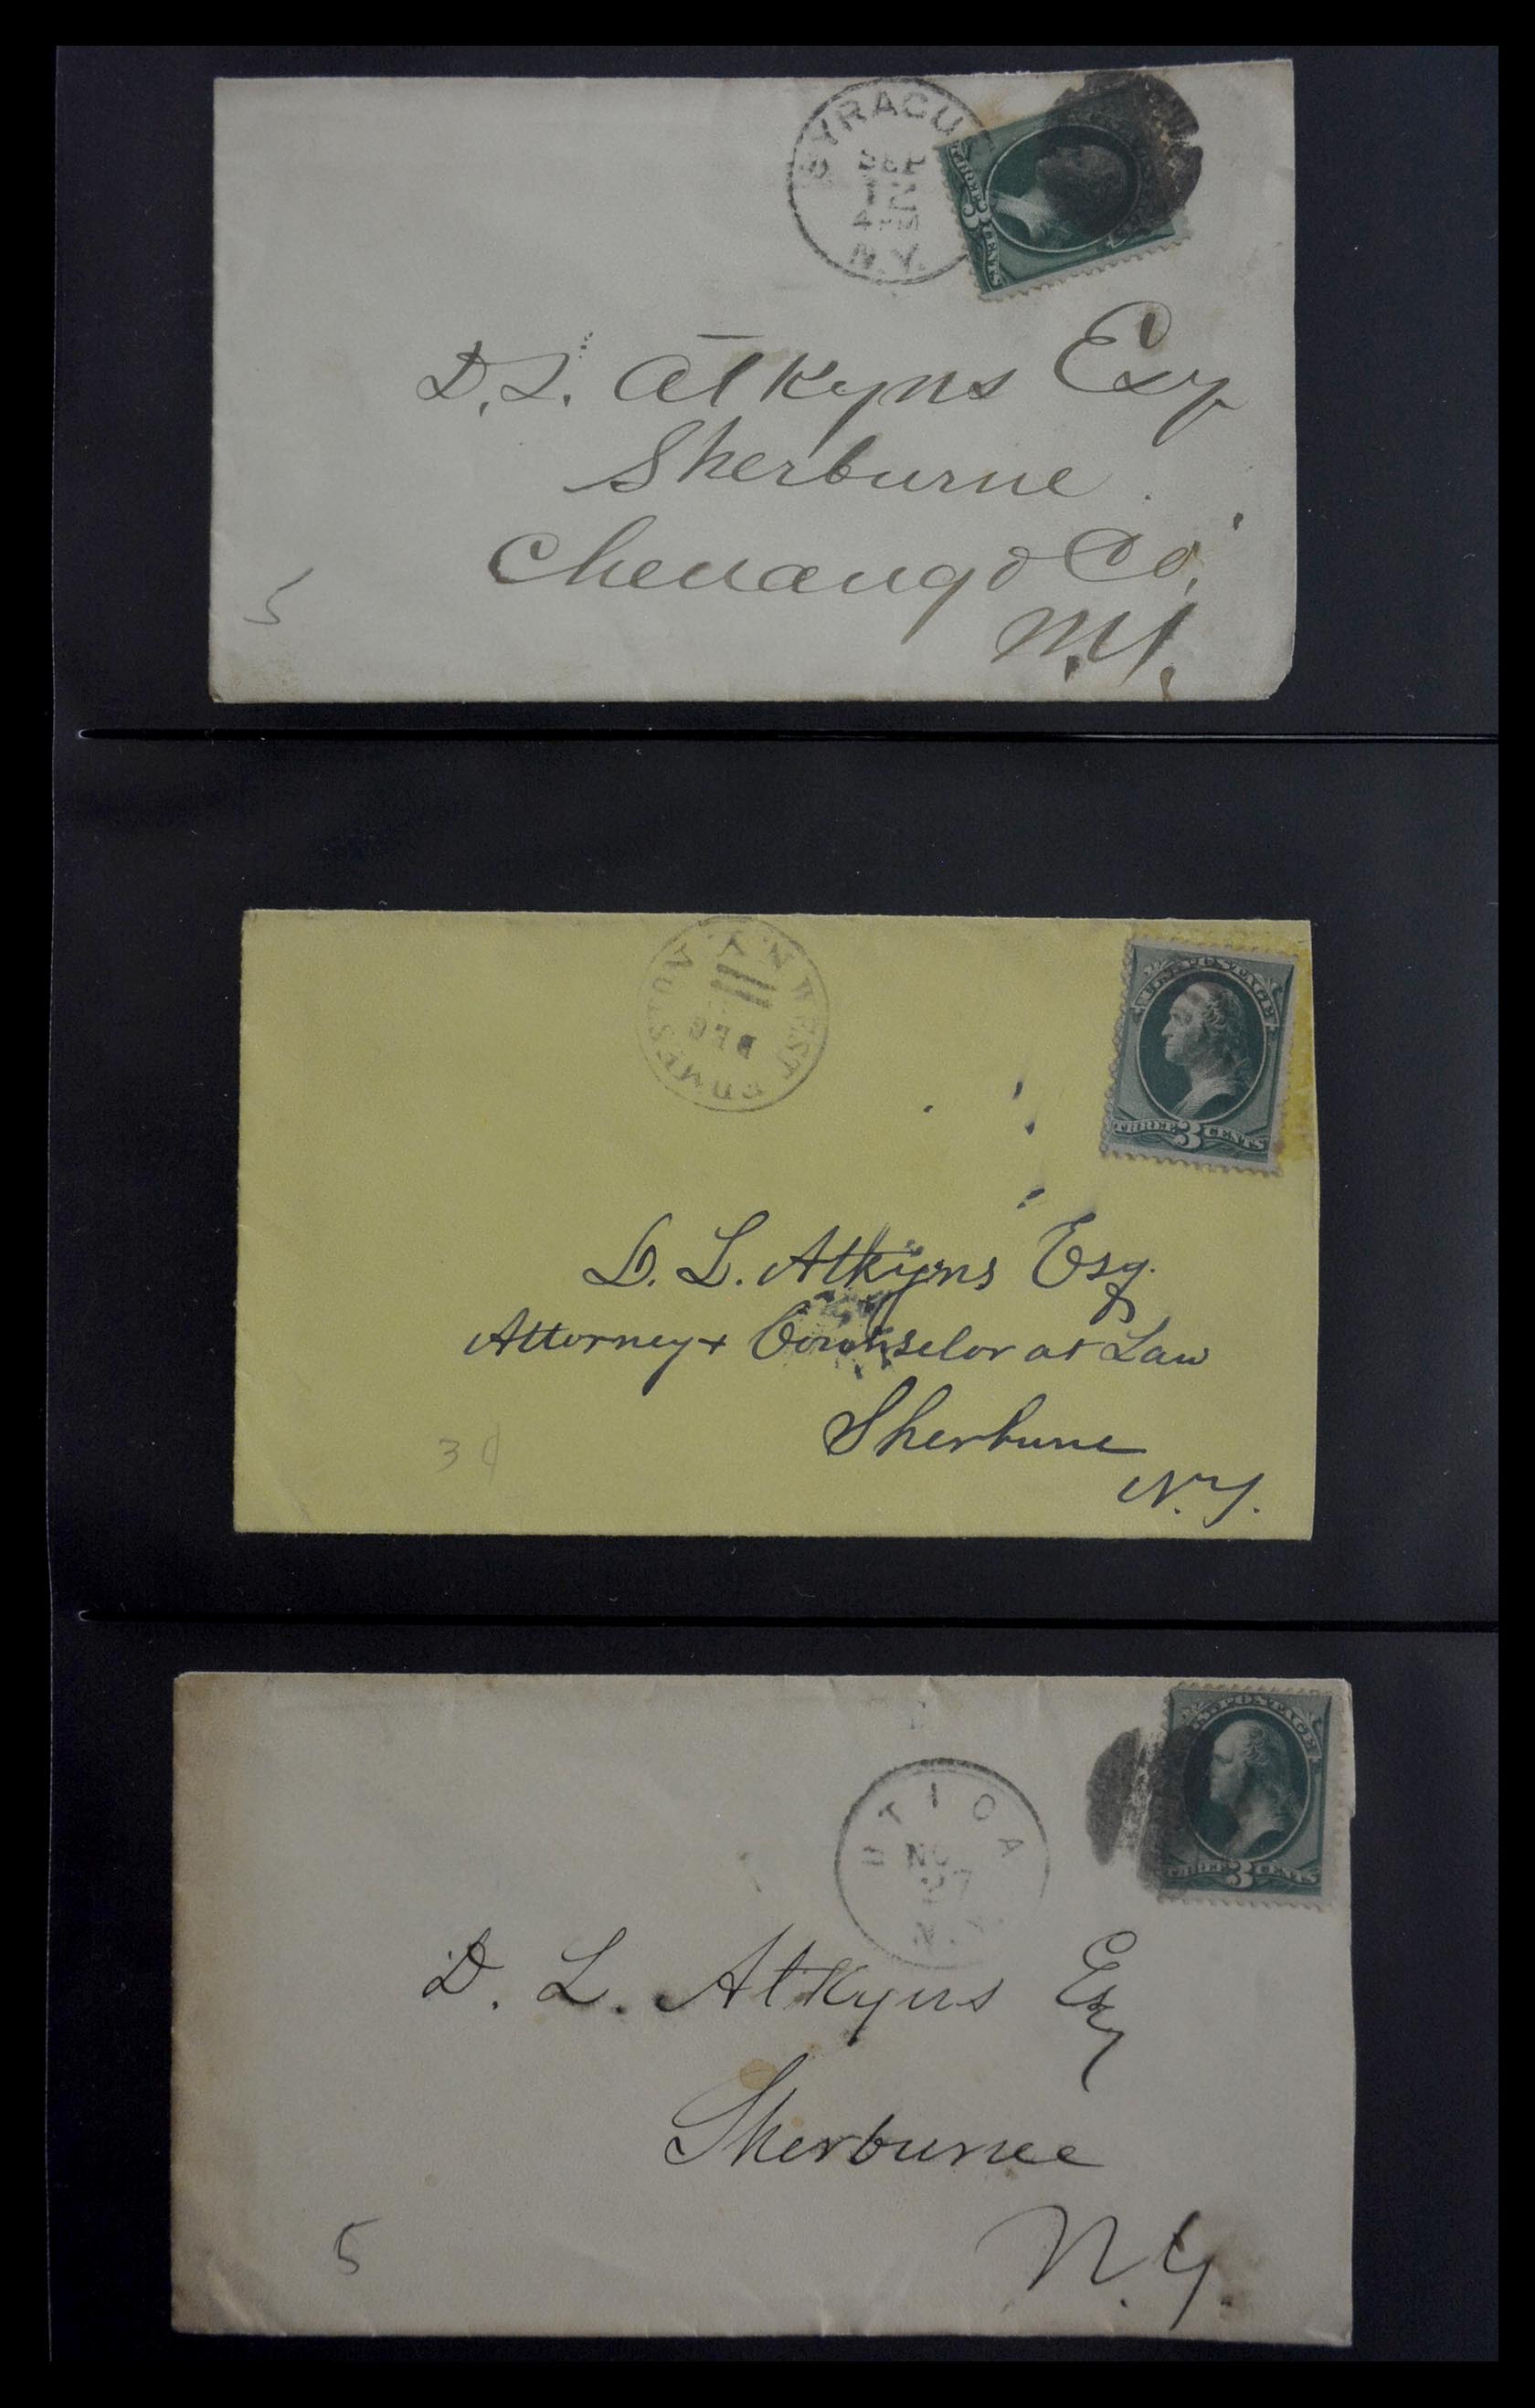 SYRACU
SEP
1
4 PM
N.Y.
THREE 3 CENTS
D. L. Atkyns Esq
Sherburne
Chenango Co.
N.Y.
5
WEST EDMESTON N.Y.
DEC
U.S. POSTAGE
THREE 3 CENTS
D. L. Atkyns Esq.
Attorney + Counselor at Law
Sherburne
N.Y.
3¢
UTICA
NO
27
N.Y.
POSTAGE
THREE 3 CENTS
D. L. Atkyns Esq
Sherburne
N.Y.
5